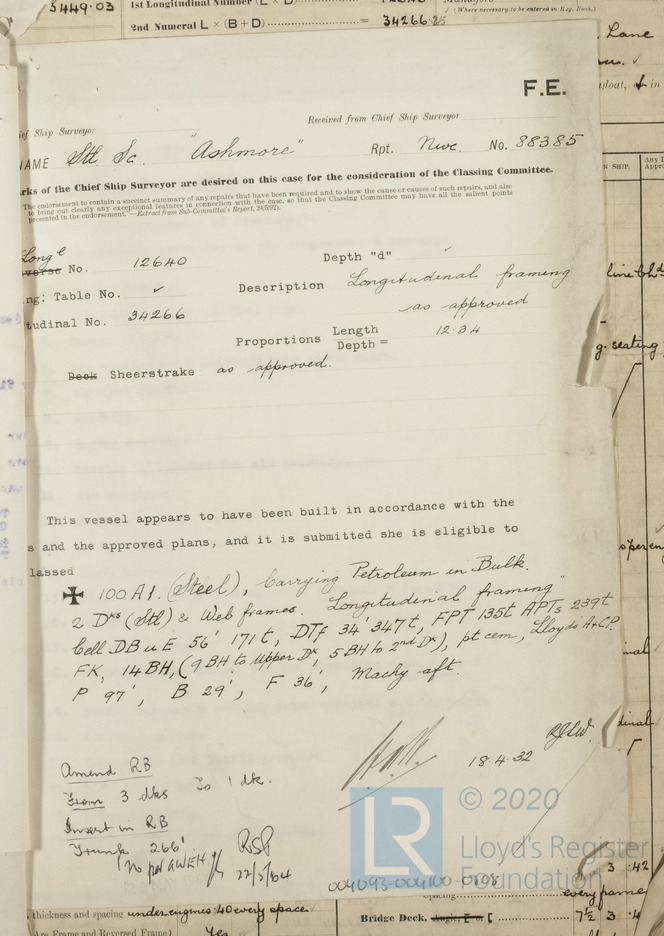 3449.03
1st Longitudinal Number (L × D)
2nd Numeral L × (B + D) = 34266.25
(Where necessary to be entered in Reg. Book.)
Lane
F.E.
Received from Chief Ship Surveyor
ief Ship Surveyor
NAME Stl Sc. "Ashmore" Rpt. Nwc. No. 88385
rks of the Chief Ship Surveyor are desired on this case for the consideration of the Classing Committee.
The endorsement to contain a succinct summary of any repairs that have been required and to show the cause or causes of such repairs, and also
to bring out clearly any exceptional features in connection with the case, so that the Classing Committee may have all the salient points
presented in the endorsement."—Extract from Sub-Committee's Report, 24/5/92).
Long l
verse No. 12640 Depth "d" ✓
ng: Table No. ✓ Description Longitudinal framing
as approved
tudinal No. 34266
Proportions Length
Depth = 12.34
Deck Sheerstrake as approved.
This vessel appears to have been built in accordance with the
s and the approved plans, and it is submitted she is eligible to
lassed
✠ 100 A1. (Steel), Carrying Petroleum in Bulk.
2 Dks (Stl) & Web frames. Longitudinal framing
Cell DB u E 56' 171t, DTf 34' 347t, FPT 135t APTs 239t
FK, 14BH, (9 BH to Upper Dk, 5 BH to 2nd Dk), pt cem, Lloyds A&CP.
P 97', B 29', F 36', Machy aft.
18.4.32
Amend RB
From 3 dks To 1 dk.
Insert in RB
Trunk 266'
RSP
© 2020
Lloyd's Register
Foundation
004093-004100-0108
3 .42
Spacing
every frame
thickness and spacing under engines .40 every space
Bridge Deck, Angle, E or [ 7½ 3 .4
(Are Frame and Reversed Frame) Yes